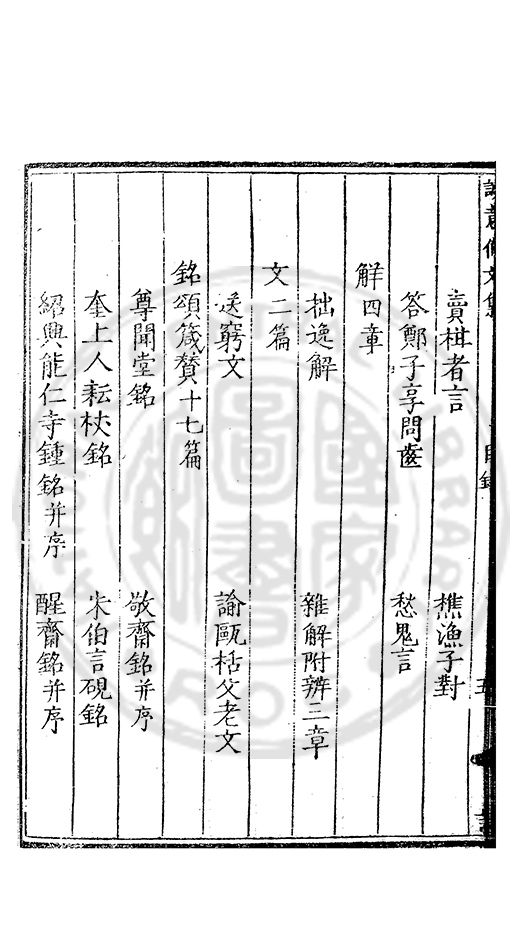 誠意伯文集 目錄 五
賣柑者言 樵漁子對
答鄭子享問齒 愁鬼言
解四章
拙逸解 雜解附辨三章
文二篇
送窮文 諭甌栝父老文
銘頌箴贊十七篇
尊聞堂銘 敬齋銘并序
奎上人耘杖銘 朱伯言硯銘
紹興能仁寺鍾銘并序 醒齋銘并序